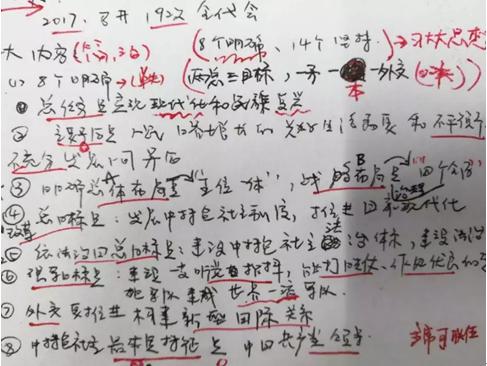 2017. 召开 19次 全代会
大 内容 (8个明确、14个坚持. → 习大大思想
(1) 8个明确 → (两总三目标, 一矛 一本 一外交
① 总任务是实现现代化和民族复兴
② 主要矛盾是人民日益增长的美好生活需要和不平衡
不充分发展之间矛盾
③ 明确总体布局是"五位一体", 战略布局是"四个全面"
④ 总目标是: 发展中特色社主制度, 推进国家治理现代化
改革
⑤ 依法治国总目标是: 建设中特色社主法治体, 建设法治
⑥ 强军目标是: 建设一支听党指挥, 能打胜仗、作风优良的军
把军队建成世界一流军队.
⑦ 外交要推进构建新型国际关系
⑧ 中特色社主最本质特征是中国共产党领导